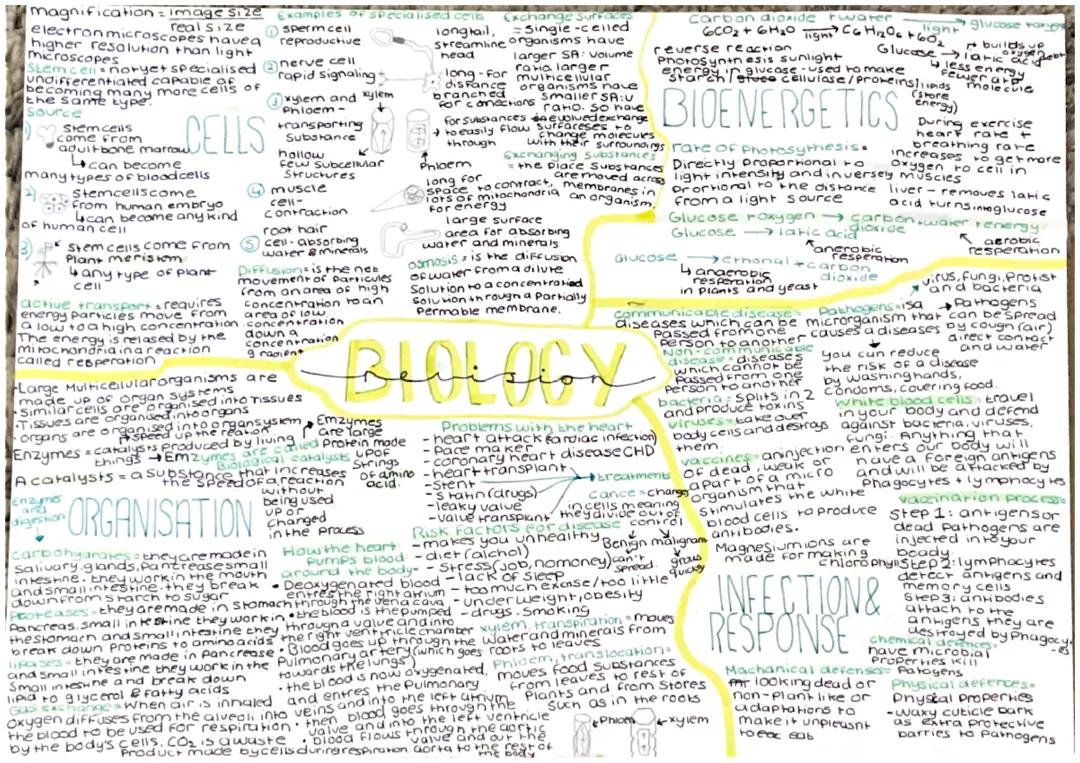 Magnification = image size
real size
electron microscopes have a
higher resolution than light
microscopes
Stem cell = not yet specialised
undifferentiated capable of
becoming many more cells of
the same type.
Source
1) Stem cells
come from
adult bone marrow
↳ can become
many types of bloodcells
2) Stem cells come
from human embryo
↳ can become any kind
of human cell
3) Stem cells come from
Plant meristem
↳ any type of plant
cell
CELLS
active transport = requires
energy particles move from
a low to a high concentration
The energy is relased by the
mitochondria in a reaction
called resperation
Examples of specialised cells
① sperm cell
reproductive
longtail,
streamline
head
② nerve cell
rapid signaling
long - for
distance
branched
for connections
③ xylem and
Phloem -
transporting
Substance
xylem
hollow
few subcellular
structures
for substances
to easily flow
through
Phloem
④ muscle
cell -
contraction
long for
space to contract,
lots of mitochondria
for energy
⑤ root hair
cell - absorbing
water & minerals
large surface
area for absorbing
water and minerals
Diffusion = is the net
movement of particules
from an area of high
concentration to an
area of low
concentration
down a
concentration
gradient
osmosis = is the diffusion
of water from a dilute
Solution to a concentrated
Solution through a Partially
Permable membrane.
Exchange surfaces
= Single-celled
organisms have
larger SA: volume
ratio larger
multicellular
organisms have
Smaller SA:V
ratio. so have
evolved exchange
surfareses to
change molecules
with their surroundings
Exchanging substances
= the place Substances
are moved across
membranes in
an organism.
Carbon dioxide + water → light → glucose + oxygen
6CO2 + 6H2O → light → C6H12O6 + 6O2
reverse reaction
Photosynthesis sunlight
energy in glucose - used to make
Starch / Cellulose / Proteins / lipids
(store
energy)
Glucose → latic acid
↗ builds up
oxygen debt
↳ less energy
fewer ATP
molecule
BIOENERGETICS
During exercise
heart rate +
breathing rate
increases to get more
oxygen to cell in
muscles
Rate of Photosythesis =
Directly proportional to
light intensity and inversely
prortional to the distance
from a light source
liver - removes latic
acid turns into glucose
Glucose + oxygen → carbon dioxide + water + energy
Glucose → latic acid
anerobic
resperation
aerobic
resperation
Glucose → ethonal + carbon
dioxide
↳ anaerobic
resperation
in plants and yeast
BIOLOGY
Revision
communicable disease =
diseases which can be
Passed from one
Person to another
Non-communicable
disease = diseases
which cannot be
Passed from one
person to another
bacteria = splits in 2
and produce toxins
viruses = take over
body cells and destroys
them.
vaccines = an injection
of a dead, weak or
apart of a micro
organism that
Stimulates the white
blood cells to produce
antibodies.
Magnesium ions are
made for making
chlorophyll
Pathogens = is a
microrganism that
causes a diseases
virus, fungi, Protist
and bacteria
→ Pathogens
can be spread
by cough (air)
direct contact
and water
you can reduce
the risk of a disease
by washing hands,
condoms, covering food.
White blood cells = travel
in your body and defend
against bacteria, viruses,
fungi. Anything that
enters our body will
have a foreign antigens
and will be attacked by
Phagocytes + lymphocytes
vaccination process =
Step 1: antigens or
dead Pathogens are
injected into your
boady.
Step 2: lymphocytes
detect antigens and
memory cells
Step 3: antibodies
attach to the
antigens they are
destroyed by Phagocy-
INFECTION &
RESPONSE
chemical
defences =
have microbal
Properties kill
Patogens
Machanical defenses =
looking dead or
non-plant like or
adaptations to
make it unpleasnt
to eat
Physical defences =
Physical properties
- waxy cuticle bark
as extra protective
barriers to Pathogens
- Large Multicellular organisms are
made up of organ systems
• Similar cells are organised into Tissues
• Tissues are organised into organs
• organs are organised into organ system
↱ speed up the reaction
Enzymes = catalysts produced by living
things → Enzymes are called
Biological catalysts
Enzymes
are large
Protein made
up of
strings
of amino
acid.
A catalysts = a Substance that increases
the speed of a reaction
without
being used
up or
changed
in the process
Enzyme
and
digestion
ORGANISATION
Carbohyrates = they are made in
Salivary, glands, Pantcreas small
intestine. they work in the mouth
and small intestine. they break
down from starch to sugar
Proteases = they are made in Stomach
Pancreas, small intestine they work in
the stomarn and small intestine they
break down Proteins to amino acids
lipases = they are made in Pancrease
and small intestine they work in the
Small intestine and break down
lipid to glycerol & fatty acids
Gas exchange = When air is inhaled
oxygen diffuses from the alveoli into
the blood to be used for respiration
by the body's cells. CO2 is a waste
Product made by cells during respiration
How the heart
Pumps blood
around the body
• Deoxygenated blood
entres the right atrium
through the vena cava
• the blood is the pumped
through a valve and into
the right ventricle chamber
• Blood goes up through the
Pulmonary artery (which goes
towards the lungs)
• the blood is now oxygenated,
and entres the Pulmonary
veins and into the left atrium
• then blood goes through the
valve and into the left ventricle
• blood flows through the aortic
valve and out the
aorta to the rest of
the body
Problems with the heart
- heart attack (cardiac infection)
- Pace maker
- coronary heart disease CHD
- heart transplant
- Stent
- Statin (drugs)
- leaky valve
- valve transplant
→ treatments
Cance = change
in cells meaning
they divide out of
control
Benign
can't
spread.
malignant
grow
quickly
Risk Factors for disease
- makes you unhealthy
- diet (alchol)
- Stress (job, no money)
- lack of Sleep
- too much excise / too little
- under weight, obesity
- drugs. Smoking
xylem, transpiration = moves
water and minerals from
roots to leaves
Phloem, translocation =
moves food substances
from leaves to rest of
Plants and from Stores
Such as in the roots
Phloem
xylem